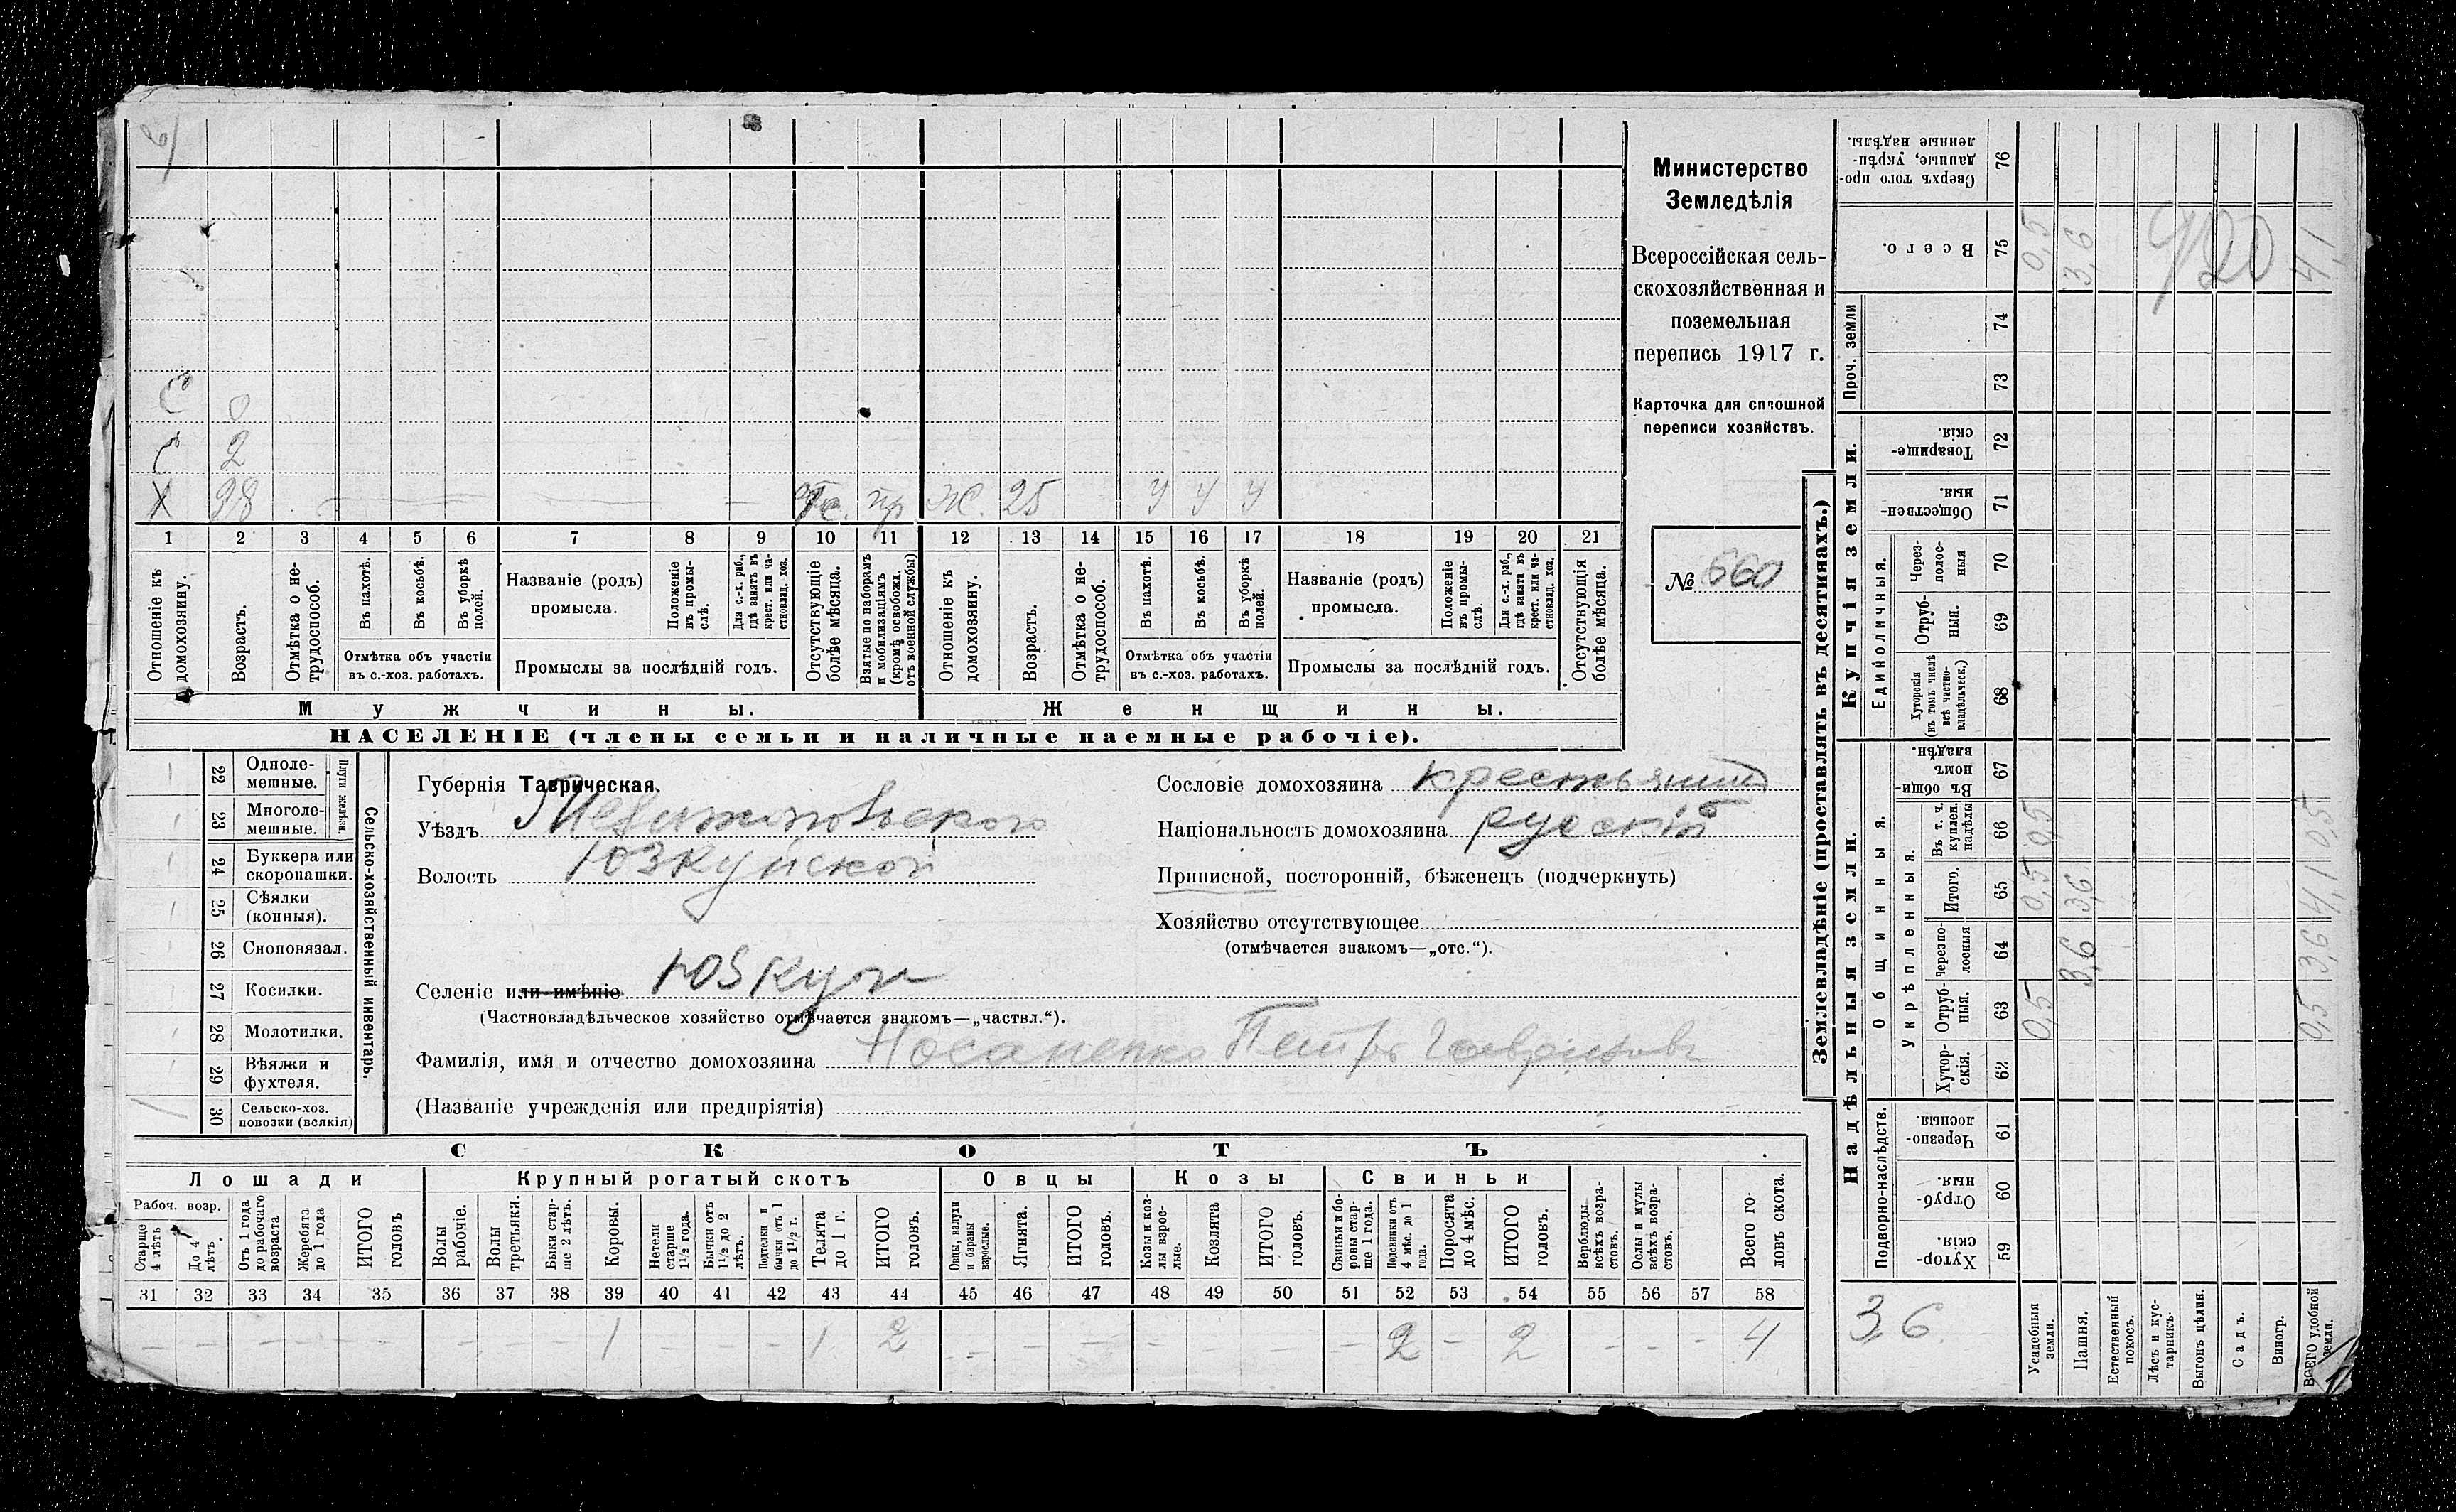 Министерство
Земледѣлія
Всероссійская сель-
скохозяйственная и
поземельная
перепись 1917 г.
Карточка для сплошной
переписи хозяйствъ.
№ 660
С 8
С 2
Х 28 Отс. пр Ж. 25 У У У
1 2 3 4 5 6 7 8 9 10 11 12 13 14 15 16 17 18 19 20 21
Отношеніе къ домохозяину.
Возрастъ.
Отмѣтка о не-трудоспособ.
Въ пахотѣ.
Въ косьбѣ.
Въ уборкѣ полей.
Отмѣтка объ участіи
въ с.-хоз. работахъ.
Названіе (родъ)
промысла.
Положеніе въ промы-слѣ.
Для с.-х. раб., гдѣ занятъ въ крест. или ча-стновлад. хоз.
Промыслы за послѣдній годъ.
Отсутствующіе болѣе мѣсяца.
Взятые по наборамъ и мобилизаціямъ (кромѣ освобожд. отъ военной службы)
Отношеніе къ домохозяину.
Возрастъ.
Отмѣтка о не-трудоспособ.
Въ пахотѣ.
Въ косьбѣ.
Въ уборкѣ полей.
Отмѣтка объ участіи
въ с.-хоз. работахъ.
Названіе (родъ)
промысла.
Положеніе въ промы-слѣ.
Для с.-х. раб., гдѣ занята въ крест. или ча-стновлад. хоз.
Промыслы за послѣдній годъ.
Отсутствующія болѣе мѣсяца.
Мужчины. Женщины.
НАСЕЛЕНІЕ (члены семьи и наличные наемные рабочіе).
Сельско-хозяйственный инвентарь.
Плуги желѣзн.
22 Одноле-мешные.
23 Многоле-мешные.
24 Буккера или скоропашки.
25 Сѣялки (конныя).
26 Сноповязал.
27 Косилки.
28 Молотилки.
29 Вѣялки и фухтеля.
30 Сельско-хоз. повозки (всякія)
Губернія Таврическая.
Уѣздъ Мелитопольскаго
Волость Юзкуйской
Селеніе или имѣніе Юзкуи
(Частновладѣльческое хозяйство отмѣчается знакомъ—„частвл.“).
Фамилія, имя и отчество домохозяина Носаненко Петръ Гавриловъ
(Названіе учрежденія или предпріятія)
Сословіе домохозяина крестьянинъ
Національность домохозяина русскій
Приписной, посторонній, бѣженецъ (подчеркнуть)
Хозяйство отсутствующее
(отмѣчается знакомъ—„отс.“).
СКОТЪ
Лошади Крупный рогатый скотъ Овцы Козы Свиньи
Рабоч. возр.
Старше 4 лѣтъ
До 4 лѣтъ.
Отъ 1 года до рабочаго возраста
Жеребята до 1 года
ИТОГО головъ
Волы рабочіе.
Волы третьяки.
Быки стар-ше 2 лѣтъ.
Коровы.
Нетели старше 1½ года.
Бычки отъ 1½ до 2 лѣтъ.
Подтелки и бычки отъ 1 до 1½ г.
Телята до 1 г.
ИТОГО головъ.
Овцы, валухи и бараны взрослые.
Ягнята.
ИТОГО головъ.
Козы и коз-лы взрос-лые.
Козлята
ИТОГО головъ.
Свиньи и бо-ровы стар-ше 1 года.
Подсвинки отъ 4 мѣс. до 1 года.
Поросята до 4 мѣс.
ИТОГО головъ.
Верблюды всѣхъ возра-стовъ.
Ослы и мулы всѣхъ возра-стовъ.
Всего го-ловъ скота.
31 32 33 34 35 36 37 38 39 40 41 42 43 44 45 46 47 48 49 50 51 52 53 54 55 56 57 58
— — — — — — — — 1 — — — 1 2 — — — — — — — 2 — 2 — — - 4
Землевладѣніе (проставлять въ десятинахъ.)
Надѣльныя земли. Купчія земли. Проч. земли
Подворно-наслѣдств.
Общинныя.
Укрѣпленныя.
Единоличныя.
59 Хутор-скія.
60 Отруб-ныя.
61 Черезпо-лосныя.
62 Хутор-скія.
63 Отруб-ныя. 0,5
64 Черезпо-лосныя 3,6
65 Итого. 0,5 3,6
66 Въ т. ч. куплен. надѣлы 0,5
67 Въ общин-номъ владѣн.
68 Хуторскія (въ томъ числѣ всѣ частно-владѣльческ.)
69 Отруб-ныя.
70 Через-полос-ныя
71 Обществен-ныя.
72 Товарище-скія.
73
74
75 Всего. 0,5 3,6 4,1
76 Сверхъ того про-данные, укрѣп-ленные надѣлы.
920
0,5 3,6 4,1 0,5
3,6
Усадебныя земли.
Пашня.
Естественный покосъ.
Лѣсъ и кус-тарникъ.
Выгонъ цѣлин.
Садъ.
Виногр.
ВСЕГО удобной земли.